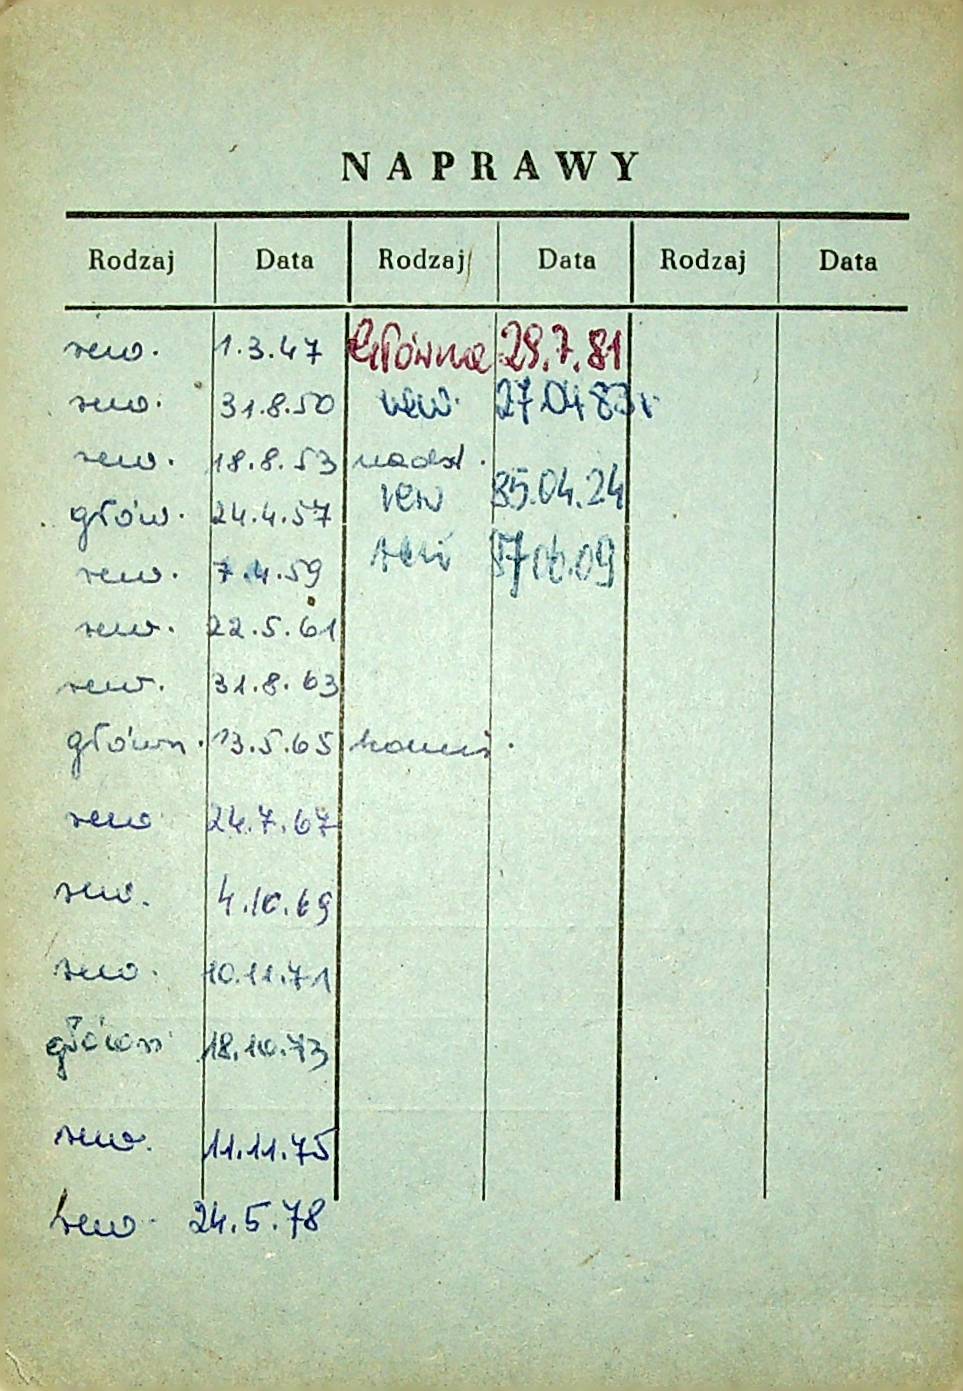 NAPRAWY
Rodzaj Data Rodzaj Data Rodzaj Data
rew. 1.3.47 Główna 29.7.81
rew. 31.8.50 rew. 27.04 83r
rew. 18.8.53 nadzl.
rew 85.04.24
głów. 24.4.57
rew. 7.4.59 87 06.09
rew. 22.5.61
rew. 31.8.63
główn. 13.5.65
rew 24.7.67
rew. 4.10.69
rew. 10.11.71
główn 18.10.73
rew. 11.11.75
rew. 24.5.78